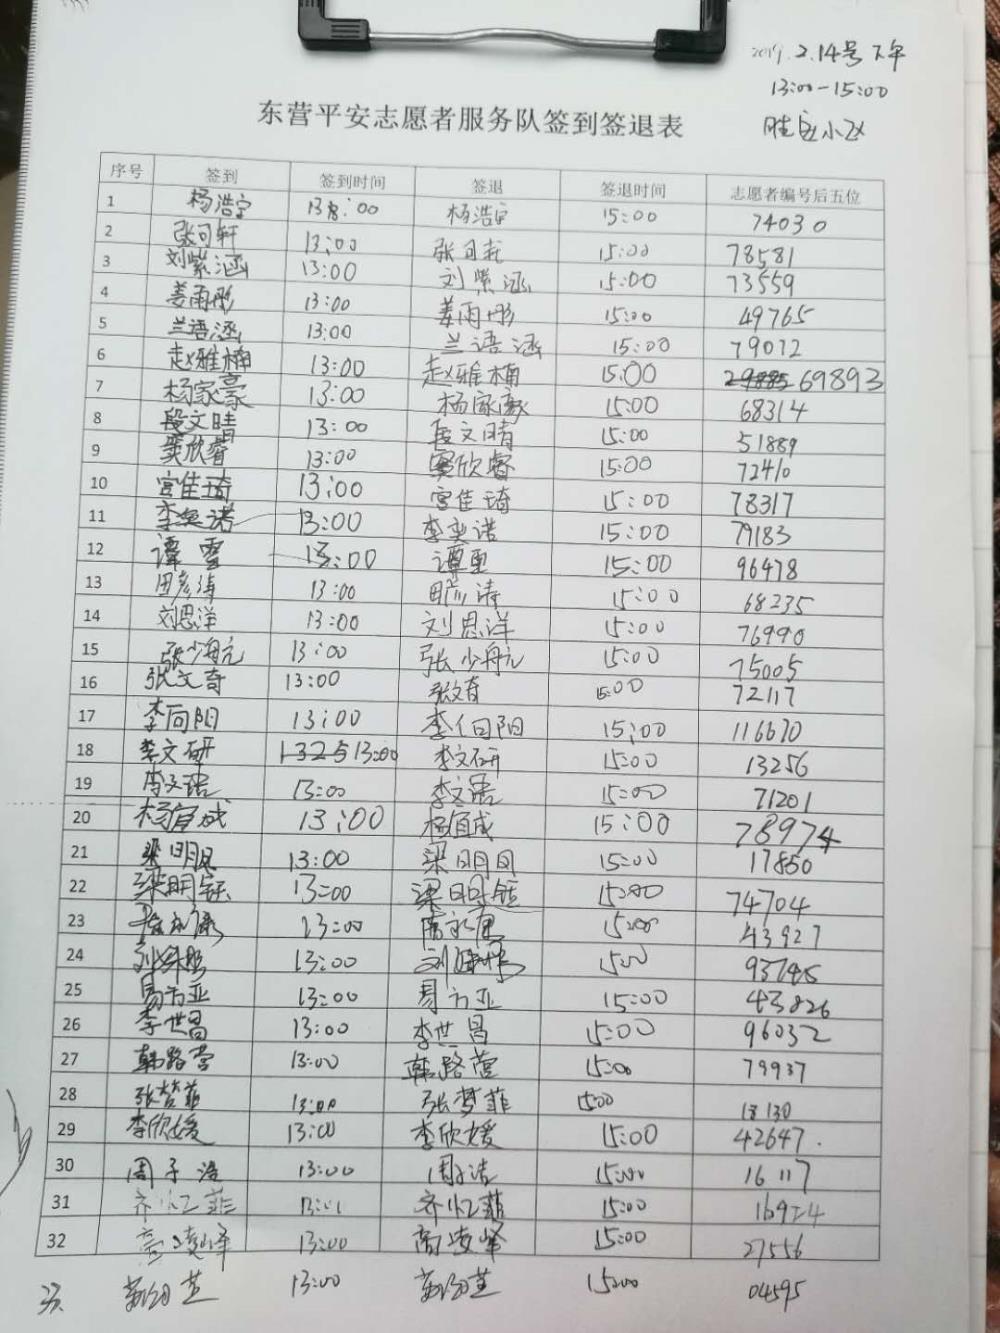 2019.2.14号下午
13:00-15:00
东营平安志愿者服务队签到签退表
序号 签到 签到时间 签退 签退时间 志愿者编号后五位
1 杨浩宇 13:00 杨浩宇 15:00 74030
2 张可轩 13:00 张可轩 15:00 78581
3 刘紫涵 13:00 刘紫涵 15:00 73559
4 姜雨彤 13:00 姜雨彤 15:00 49765
5 兰语涵 13:00 兰语涵 15:00 79012
6 赵雅楠 13:00 赵雅楠 15:00 69893
7 杨家豪 13:00 杨家豪 15:00 68314
8 段文晴 13:00 段文晴 15:00 51889
9 窦欣睿 13:00 窦欣睿 15:00 72410
10 宫佳琦 13:00 宫佳琦 15:00 78317
11 李奕诺 13:00 李奕诺 15:00 79183
12 谭雪 13:00 谭雪 15:00 96478
13 田彦涛 13:00 田彦涛 15:00 68235
14 刘思洋 13:00 刘思洋 15:00 76990
15 张少航 13:00 张少航 15:00 75005
16 张文奇 13:00 张文奇 15:00 72117
17 李向阳 13:00 李向阳 15:00 116670
18 李文研 13:00 李文研 15:00 13256
19 李文 13:00 李文 15:00 71201
20 杨宜成 13:00 杨宜成 15:00 78974
21 梁明凤 13:00 梁明凤 15:00 17850
22 梁明钰 13:00 梁明钰 15:00 74704
23 13:00 15:00 43927
24 刘 13:00 刘 15:00 93745
25 易方亚 13:00 易方亚 15:00 43826
26 李世昌 13:00 李世昌 15:00 96032
27 韩路营 13:00 韩路营 15:00 79937
28 张梦菲 13:00 张梦菲 15:00 18130
29 李欣媛 13:00 李欣媛 15:00 42647.
30 周子浩 13:00 周子浩 15:00 16117
31 齐忆菲 13:01 齐忆菲 15:00 16924
32 商凌峰 13:00 商凌峰 15:00 27556
33. 13:00 15:00 04595